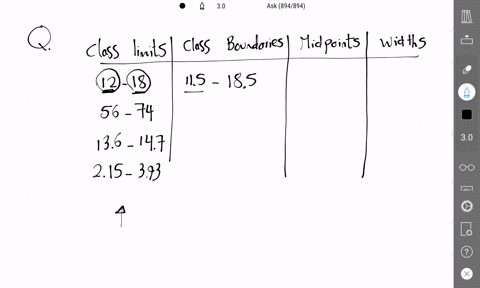 3.0 Ask (894/894)
Q. Class limits Class Boundaries Midpoints Widths
12 - 18 11.5 - 18.5
56 - 74
13.6 - 14.7
2.15 - 3.93
3.0